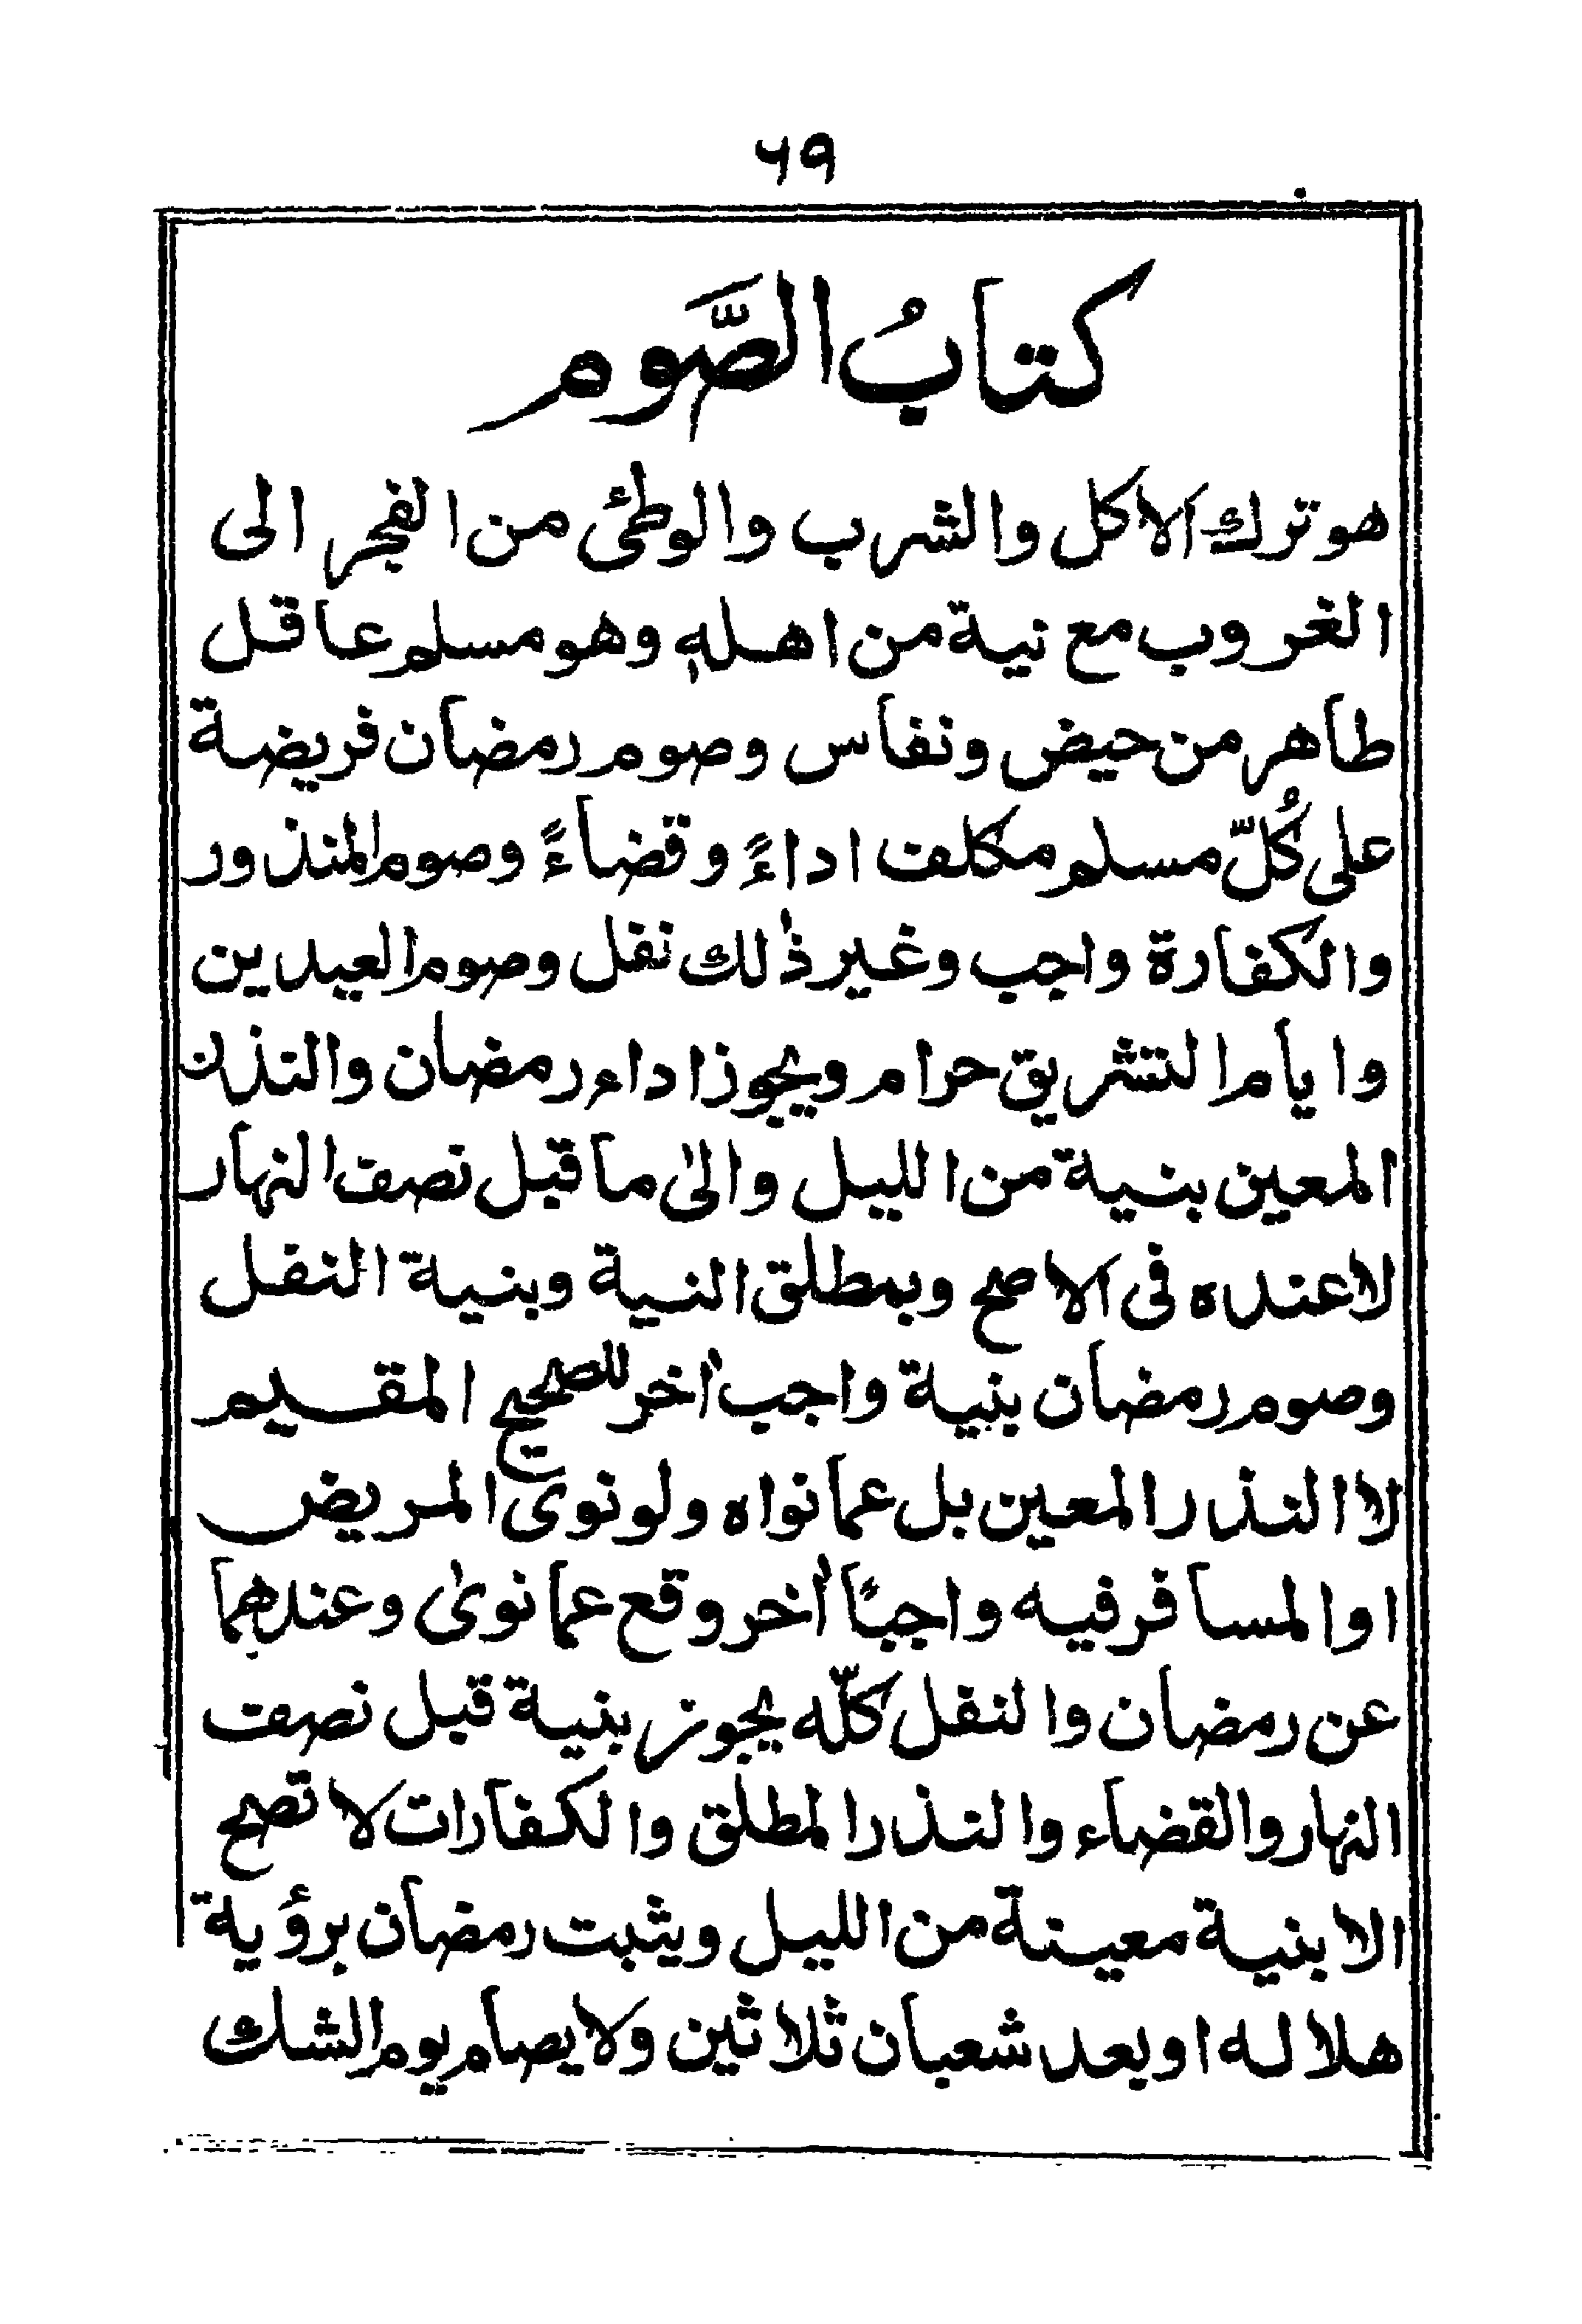 ۶۹
كتابُ الصَّوم
هو ترك الاكل والشرب والوطئ من الفجر الى
الغروب مع نية من اهله وهو مسلم عاقل
طاهر من حيض ونفاس وصوم رمضان فريضة
على كُلّ مسلم مكلف اداءً وقضاءً وصوم المنذور
والكفارة واجب وغير ذٰلك نفل وصوم العيدين
وايام التشريق حرام ويجوز اداء رمضان والنذر
المعين بنية من الليل والىٰ ما قبل نصف النهار
لا عنده فى الاصح وبمطلق النية وبنية النفل
وصوم رمضان بنية واجب اٰخر للصحيح المقيم
لا النذر المعين بل عما نواه ولو نوى المريض
او المسافر فيه واجبًا اٰخر وقع عما نوىٰ وعندهما
عن رمضان والنفل كلّه يجوز بنية قبل نصف
النهار والقضاء والنذر المطلق والكفارات لا تصح
الا بنية معينة من الليل ويثبت رمضان برؤية
هلاله او بعد شعبان ثلاثين ولا يصام يوم الشك